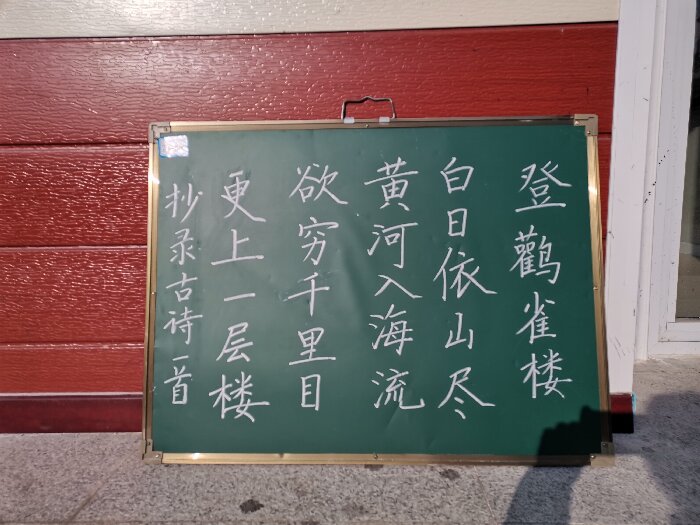 登鸛雀楼
白日依山尽
黄河入海流
欲穷千里目
更上一层楼
抄录古诗一首